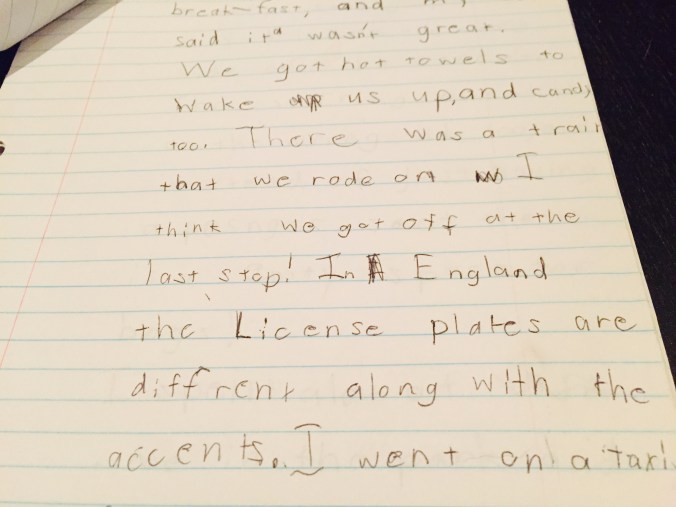 breakfast, and
said it wasn't great.
We got hot towels to
wake us up, and candy
too. There was a train
that we rode on I
think we got off at the
last stop! In England
the License plates are
diffrent along with the
accents. I went on a taxi